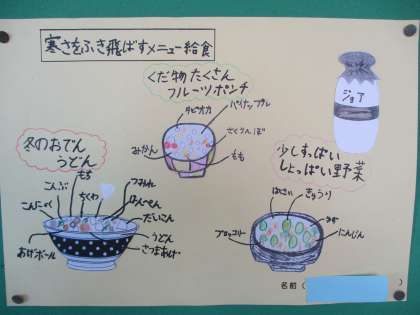 寒さをふき飛ばすメニュー給食
くだ物たくさん
フルーツポンチ
タピオカ
パイナップル
さくらんぼ
みかん
もも
ジョア
冬のおでん
うどん
もち
こんぶ
ちくわ
つみれ
はんぺん
こんにゃく
だいこん
うどん
さつまあげ
あげボール
少しすっぱい
しょっぱい野菜
はくさい
きゅうり
ブロッコリー
にんじん
名前(